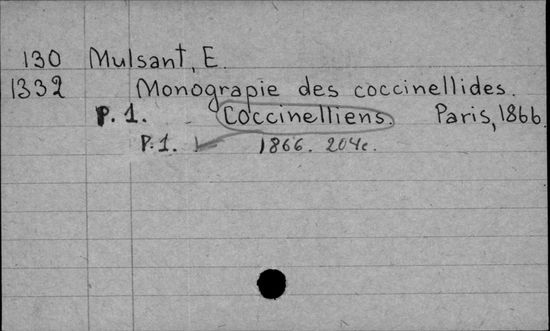 130 Mulsant, E.
1332 Monograpie des coccinellides.
P. 1. Coccinelliens. Paris, 1866
P. 1. 1866. 204c.